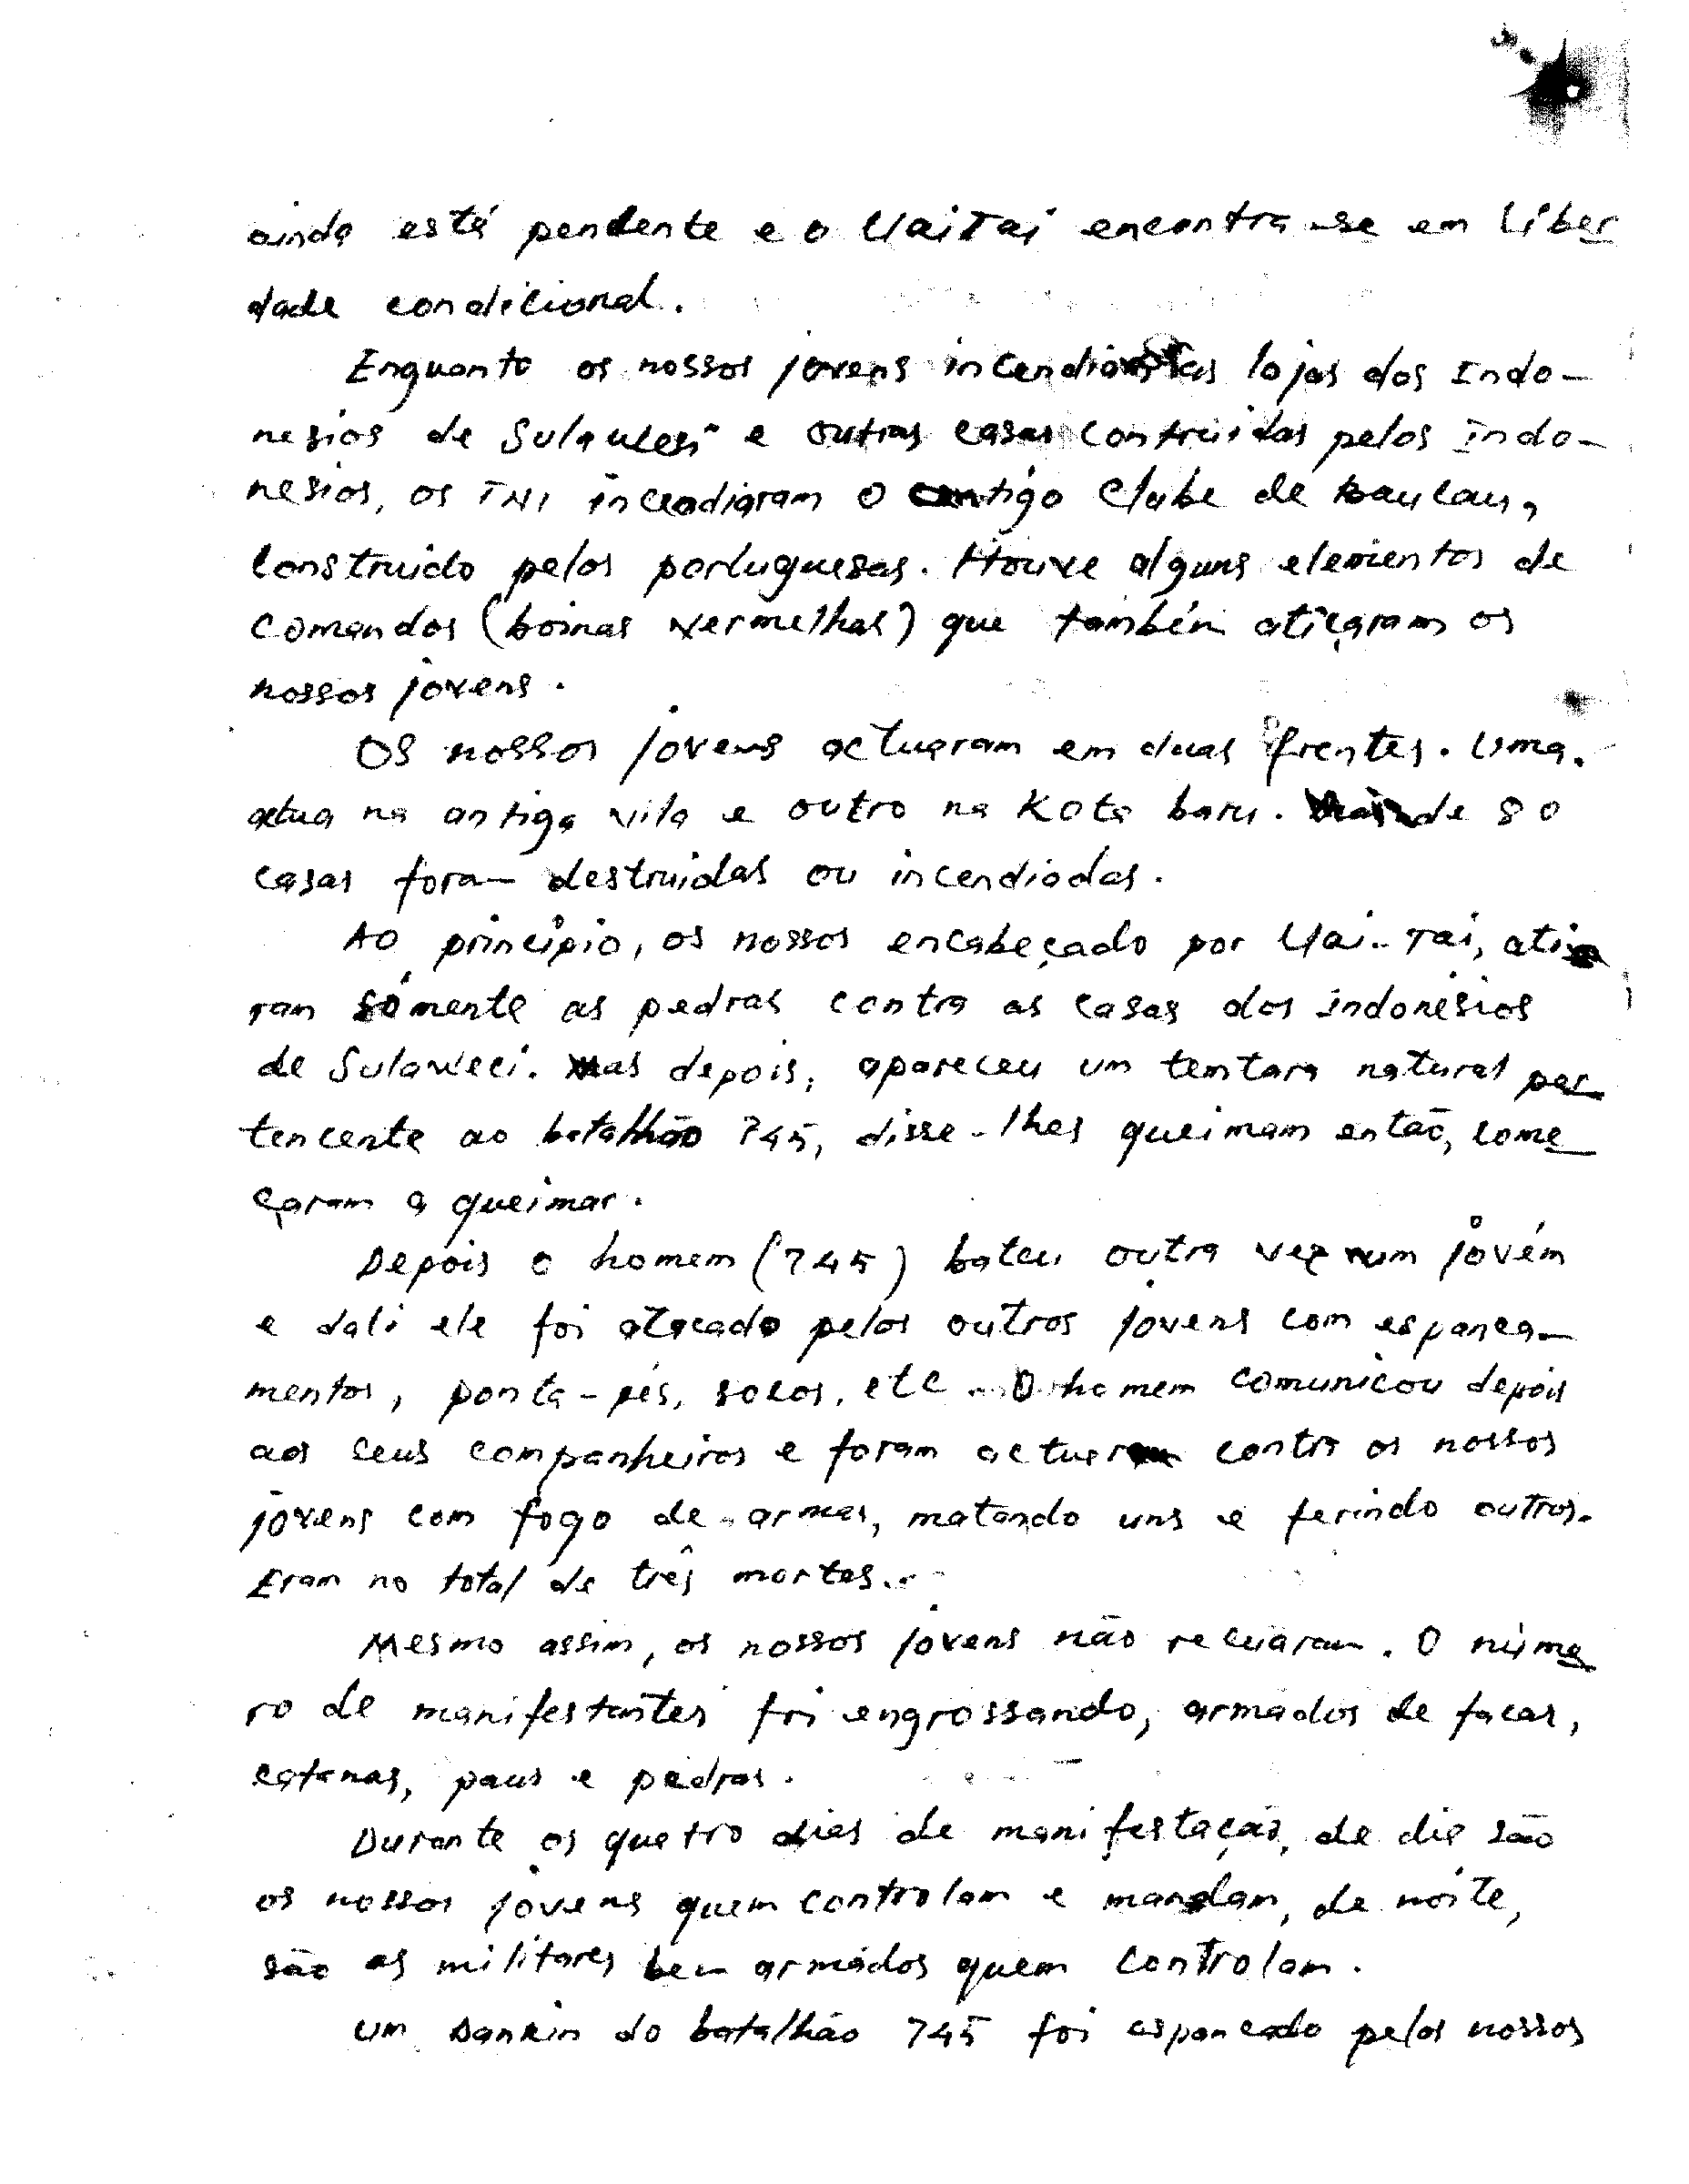 ainda está pendente e o UaiTai encontra-se em liber
dade condicional.
Enquanto os nossos jovens incendiam as lojas dos Indo-
nesios de Sulawesi e outras casas contruidas pelos Indo-
nesios, os TNI incendiaram o antigo Clube de Baucau,
construido pelos portugueses. Houve alguns elementos de
Comandos (boinas vermelhas) que também atiçaram os
nossos jovens.
Os nossos jovens actuaram em duas frentes. Uma
actua na antiga vila e outro na Kota baru. Mais de 80
casas foram destruidas ou incendiadas.
Ao princípio, os nossos encabeçado por Uai-Tai, atira
ram sómente as pedras contra as casas dos indonésios
de Sulaweci. Mas depois, apareceu um tentara natural per
tencente ao batalhão 745, disse-lhes queimam então, come
çaram a queimar.
Depois o homem (745) bateu outra vez num jovém
e dali ele foi atacado pelos outros jovens com espanca-
mentos, ponta-pés, socos, etc. O homem comunicou depois
aos seus companheiros e foram actuar contra os nossos
jovens com fogo de armas, matando uns e ferindo outros.
Eram no total de três mortes.
Mesmo assim, os nossos jovens não recuaram. O núme
ro de manifestantes foi engrossando, armados de facas,
catanas, paus e pedras.
Durante os quatro dias de manifestação, de dia são
os nossos jovens quem controlam e mandam, de noite,
são as militares bem armados quem controlam.
Um Dankin do batalhão 745 foi espancado pelos nossos